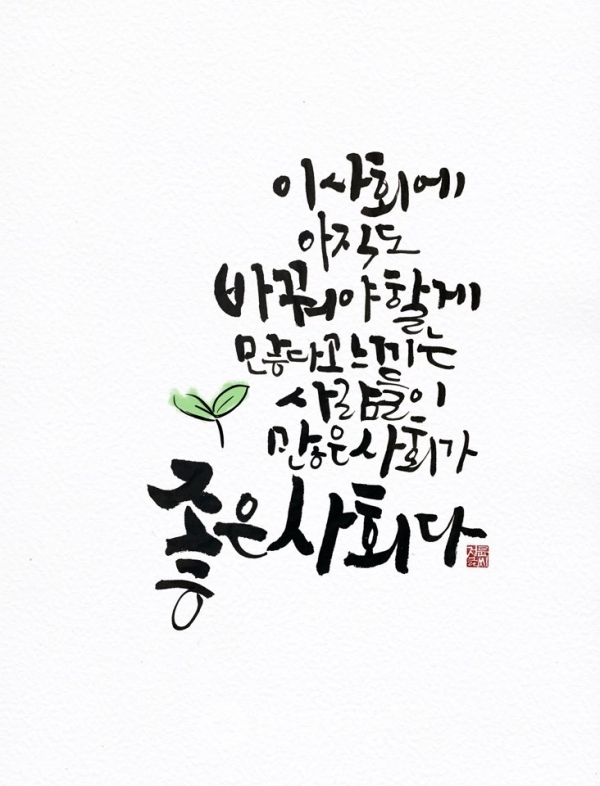 이 사회에
아직도
바꿔야 할 게
많다고 느끼는
사람들이
많은 사회가
좋은 사회다